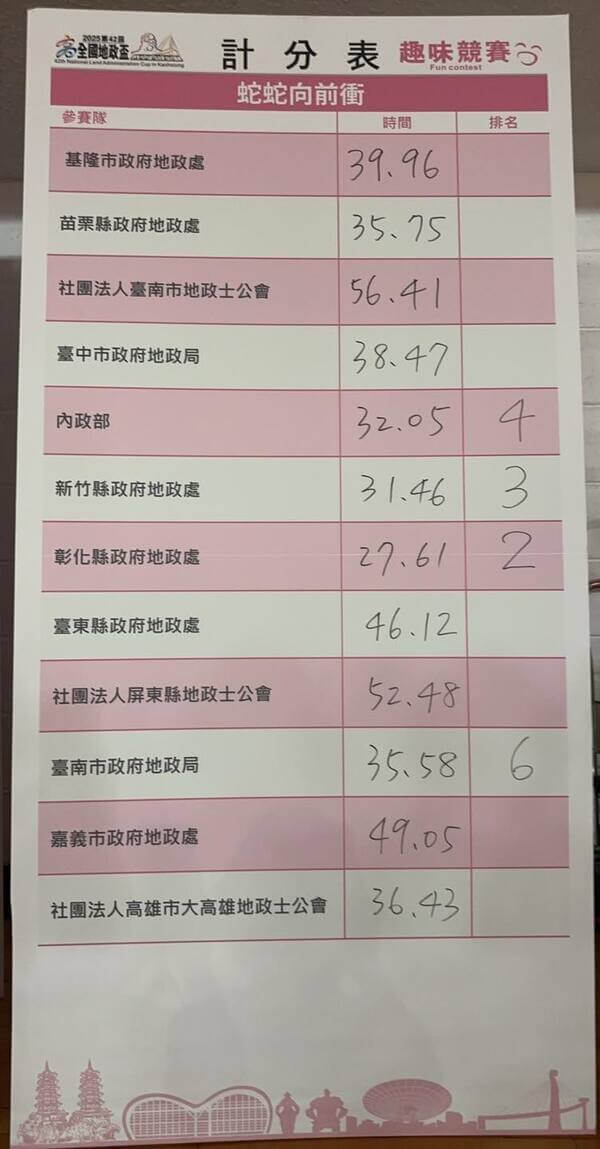 2025第42屆
全國地政盃
42th National Land Administration Cup in Kaohsiung
計分表
趣味競賽
Fun contest
蛇蛇向前衝
參賽隊 時間 排名
基隆市政府地政處 39.96
苗栗縣政府地政處 35.75
社團法人臺南市地政士公會 56.41
臺中市政府地政局 38.47
內政部 32.05 4
新竹縣政府地政處 31.46 3
彰化縣政府地政處 27.61 2
臺東縣政府地政處 46.12
社團法人屏東縣地政士公會 52.48
臺南市政府地政局 35.58 6
嘉義市政府地政處 49.05
社團法人高雄市大高雄地政士公會 36.43